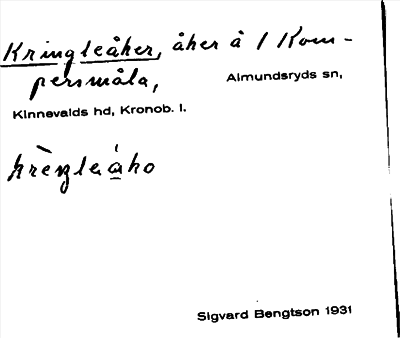 Kringleåker, åker å / Kom-
persmåla, Almundsryds sn,
Kinnevalds hd, Kronob. l.
krèŋleåko
Sigvard Bengtson 1931